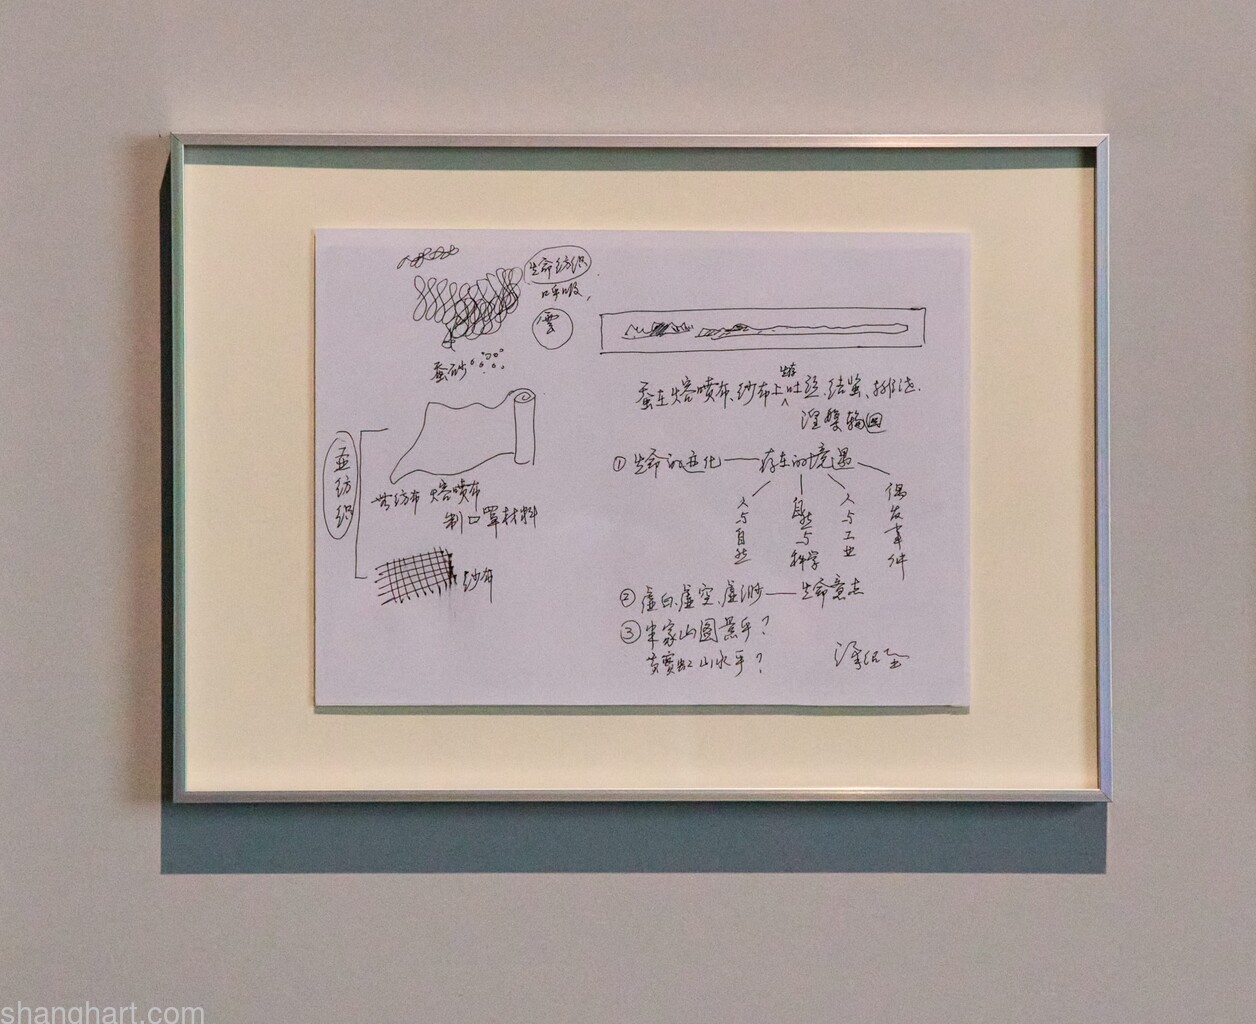 生命纺织
呼吸,
雲
蚕砂
亚纺织
熔喷布
制口罩材料
纱布
生存
蚕在熔喷布、纱布上吐丝、结茧、排泄.
涅槃轮回
① 生命的进化——存在的境遇
人与自然
自然与科学
人与工业
偶发事件
② 虚白、虚空、虚渺——生命意志
③ 米家山图景乎?
黄宾虹山水乎?
shanghart.com